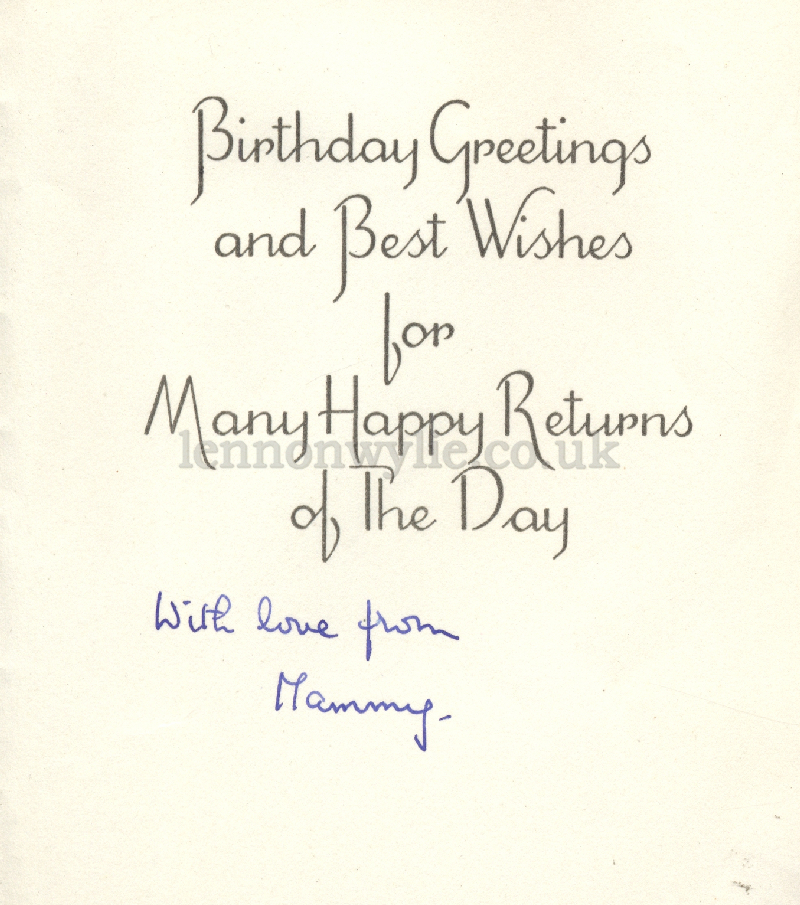 Birthday Greetings
and Best Wishes
for
Many Happy Returns
lennonwylie.co.uk
of The Day
With love from
Mammy.